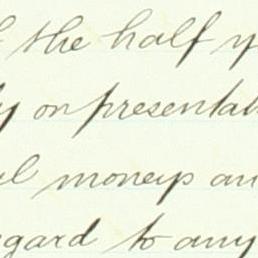 the half y
on presentat
moneys an
egard to any